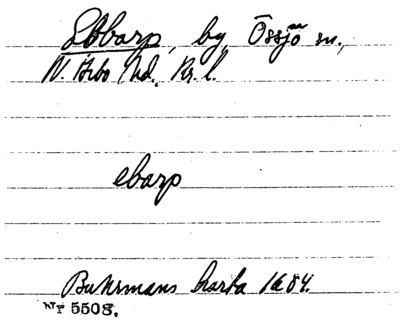 Ebbarp, by, Össjö sn.,
N. Åsbo hd. Kr. l.
ebarp
Buhrmans karta 1684.
Nr 5508.